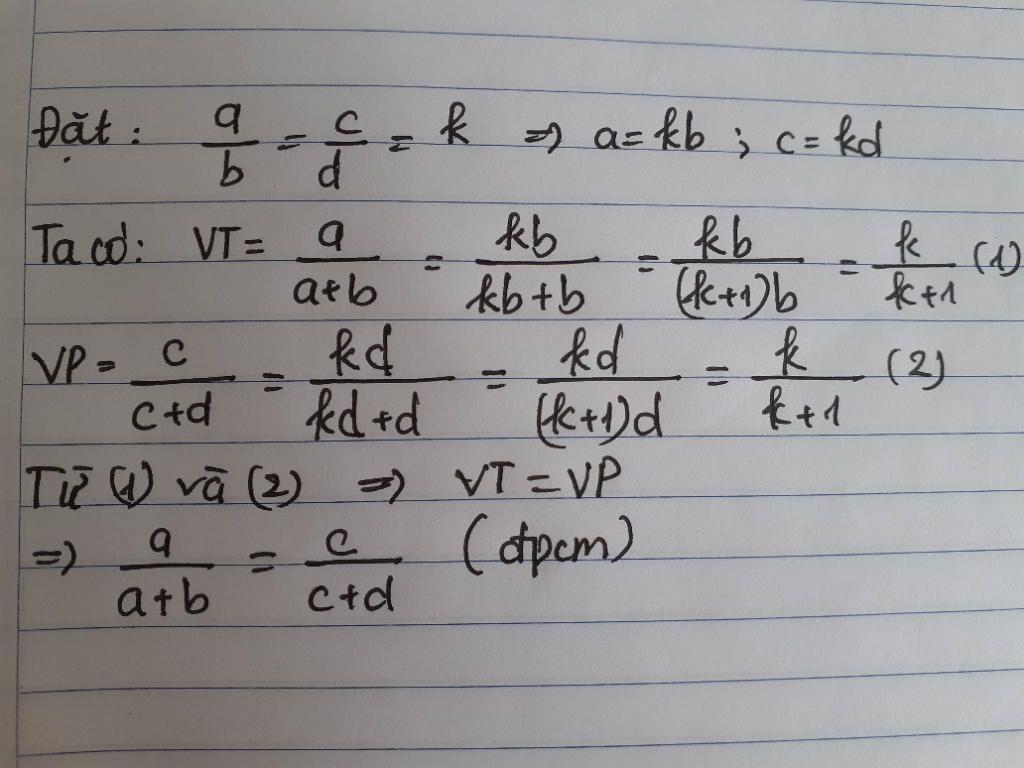 Đặt: a/b = c/d = k => a=kb ; c=kd
Ta có: VT= a/(a+b) = kb/(kb+b) = kb/((k+1)b) = k/(k+1) (1)
VP= c/(c+d) = kd/(kd+d) = kd/((k+1)d) = k/(k+1) (2)
Từ (1) và (2) => VT=VP
=> a/(a+b) = c/(c+d) (đpcm)